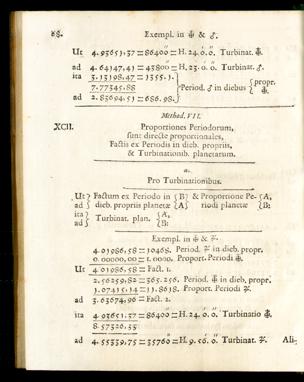 88. Exempl. in ♁ & ♂.
Ut 4.93651.37 = 86400″ = H. 24. 0. 0. Turbinat. ♁.
ad 4.64147.41 = 43800 = H. 23. 0. 0. Turbinat. ♂.
ita 3.13198.47 = 1355.1.
7.77345.88 Period. ♂ in diebus { propr. ♁.
ad 2.83694.51 = 686.98.
Method. VII.
XCII. Proportiones Periodorum,
sunt directe proportionales,
Factis ex Periodis in dieb. propriis,
& Turbinationib. planetarum.
a.
Pro Turbinationibus.
Ut } Factum ex Periodo in { B } & Proportione Pe- { A,
ad } dieb. propriis planetæ { A } riodi planetæ { B:
ita } Turbinat. plan. { A,
ad } { B:
Exempl. in ♁ & ♃.
4.01986.58 = 10468. Period. ♃ in dieb. propr.
0.00000.00 = 1.0000. Proport. Periodi ♁.
Ut 4.01986.58 = Fact. 1.
2.56259.82 = 365.256. Period. ♁ in dieb. propr.
1.07415.14 = 11.8618. Proport. Periodi ♃.
ad 3.63674.96 = Fact. 2.
ita 4.93651.37 = 86400″ = H. 24. 0. 0. Turbinatio ♁.
8.57326.33
ad 4.55339.75 = 35760 = H. 9. 56. 0. Turbinat. ♃. Ali-